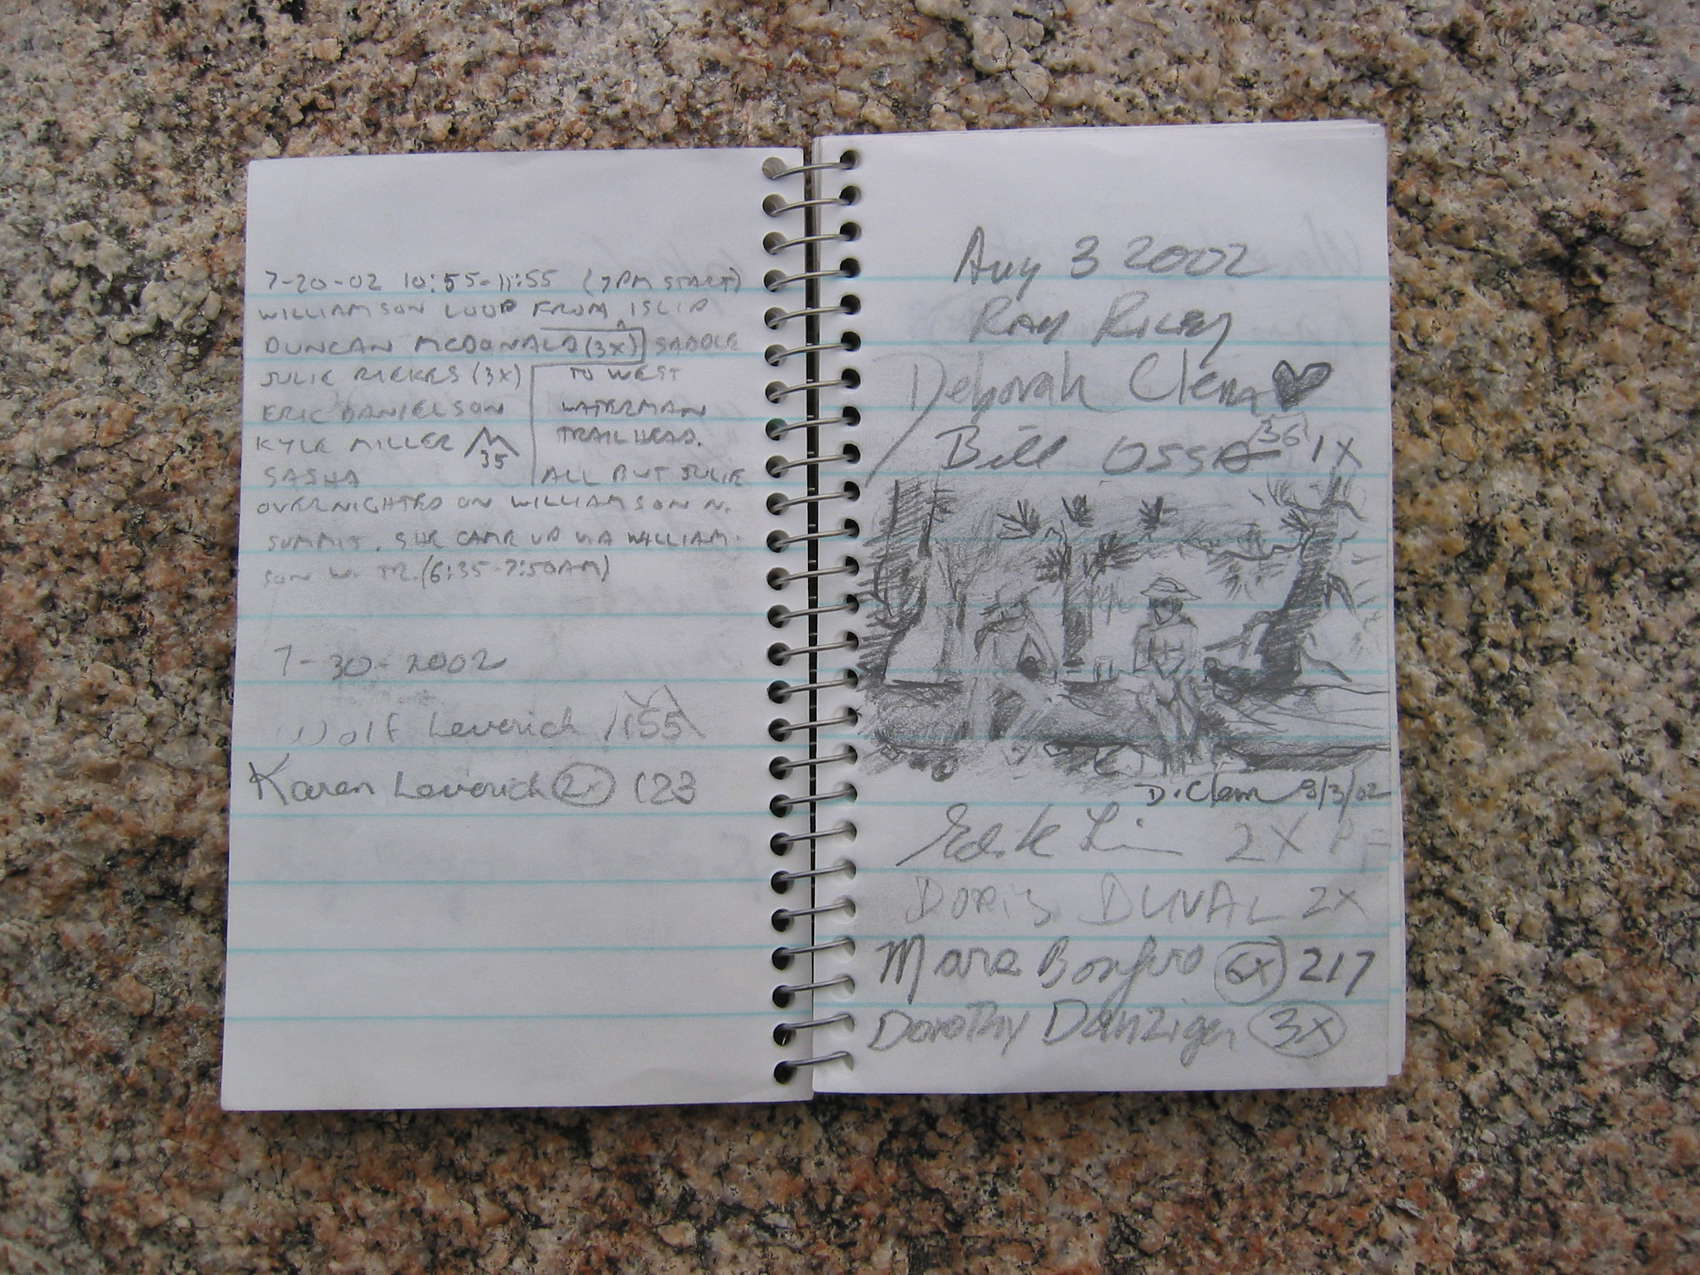 7-20-02 10:55-11:55 (7PM START)
WILLIAMSON LOOP FROM ISLIP
DUNCAN MCDONALD (3X) SADDLE
JULIE RIEKES (3X) TO WEST
ERIC DANIELSON WATERMAN
KYLE MILLER 35 TRAILHEAD.
SASHA ALL BUT JULIE
OVERNIGHTED ON WILLIAMSON N.
SUMMIT. SHE CAME UP VIA WILLIAM-
SON W. TR. (6:35-7:50AM)
7-30-2002
Wolf Leverich 155
Karen Leverich 2x 123
Aug 3 2002
RAY RILEY
Deborah Clem
Bill OSSA 36 1X
D. Clem 8/3/02
2X
DORIS DUVAL 2X
Mars Bonfiro 6X 217
Dorothy Danziger 3X